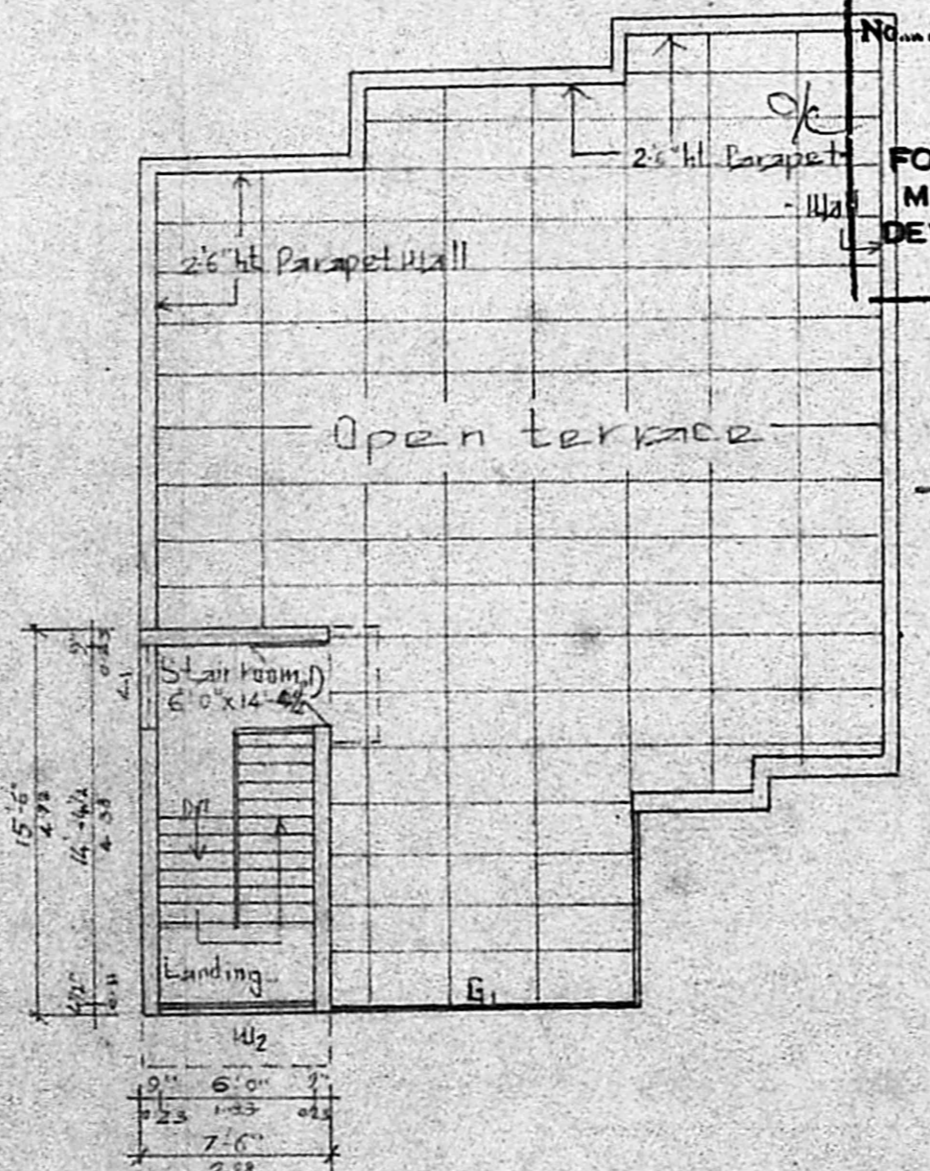 No.....
O/C
2'6" ht Parapet
FO
- Wall
M
DE
2'6" ht Parapet Wall
Open terrace
Stair room
D
6'0" x 14'-4½"
9"
0.23
15'-6"
4.72
14'-4½"
4.38
4½"
0.11
Dn
Landing
G1
W2
9" 6'0" 9"
0.23 1.83 0.23
7'-6"